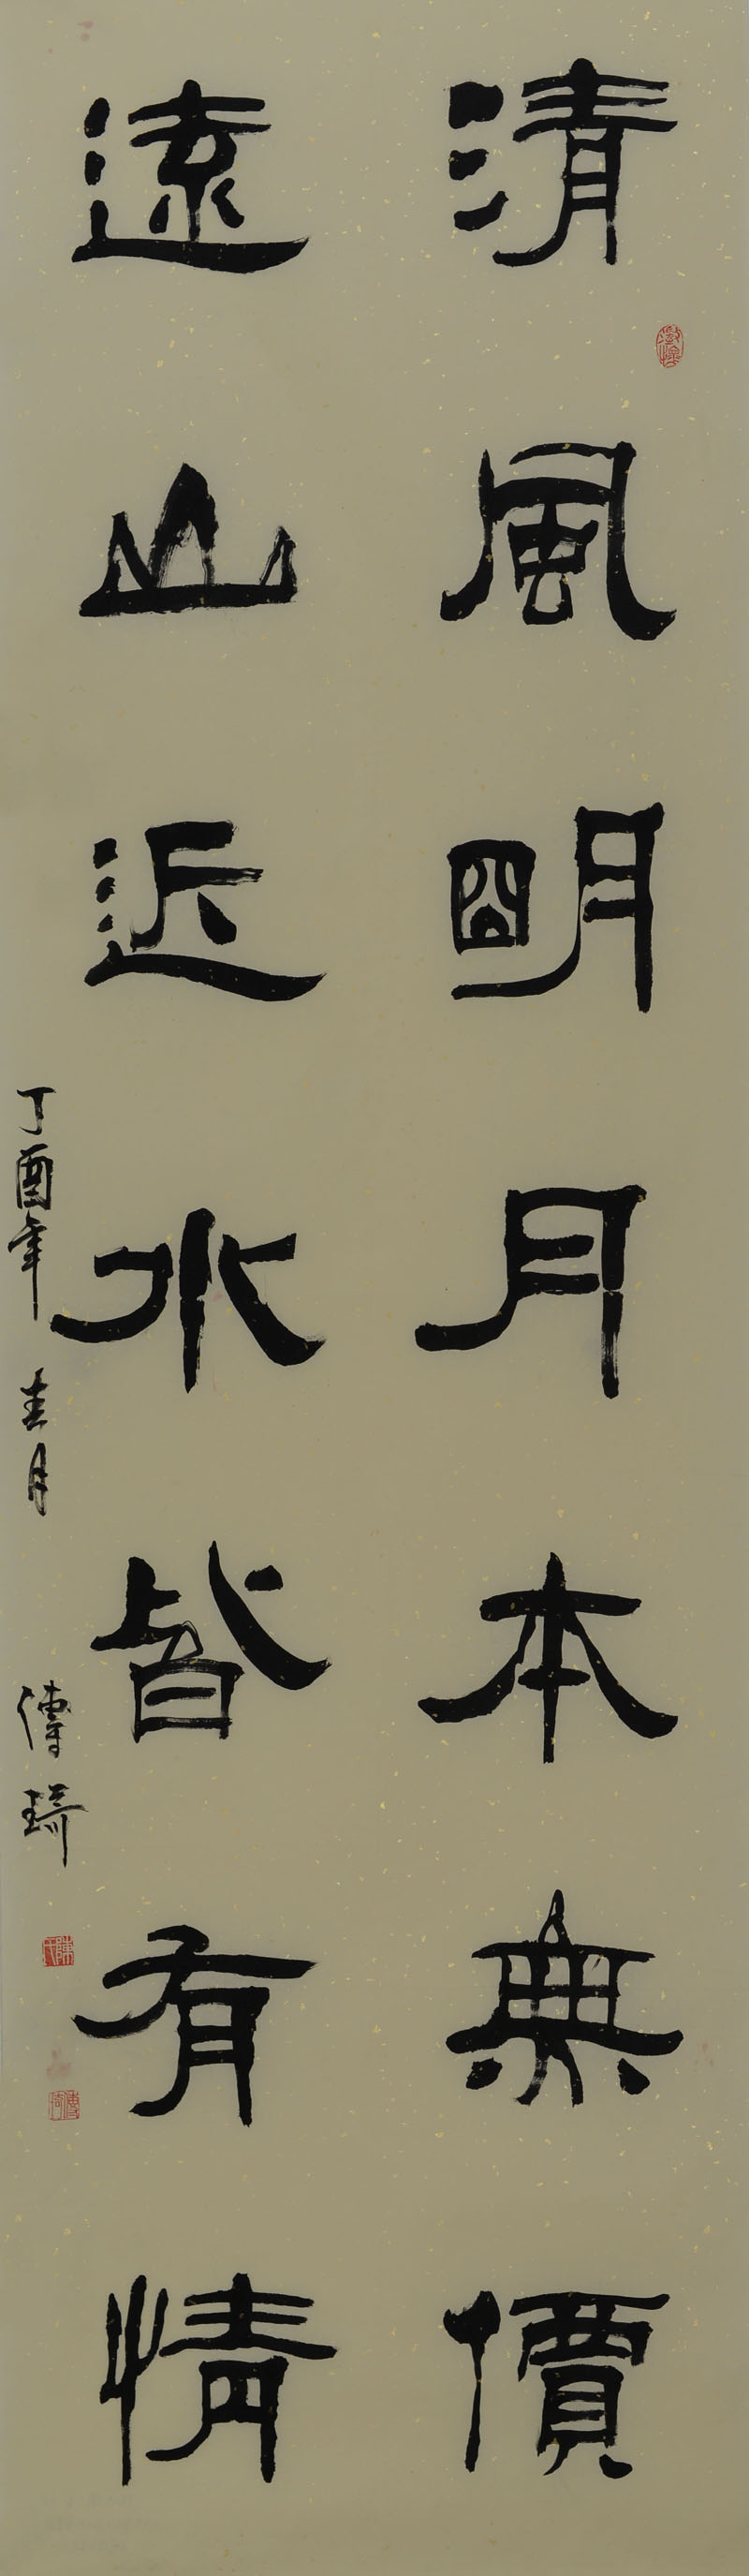 清風明月本無價
遠山近水皆有情
丁酉年 春月 傳琦